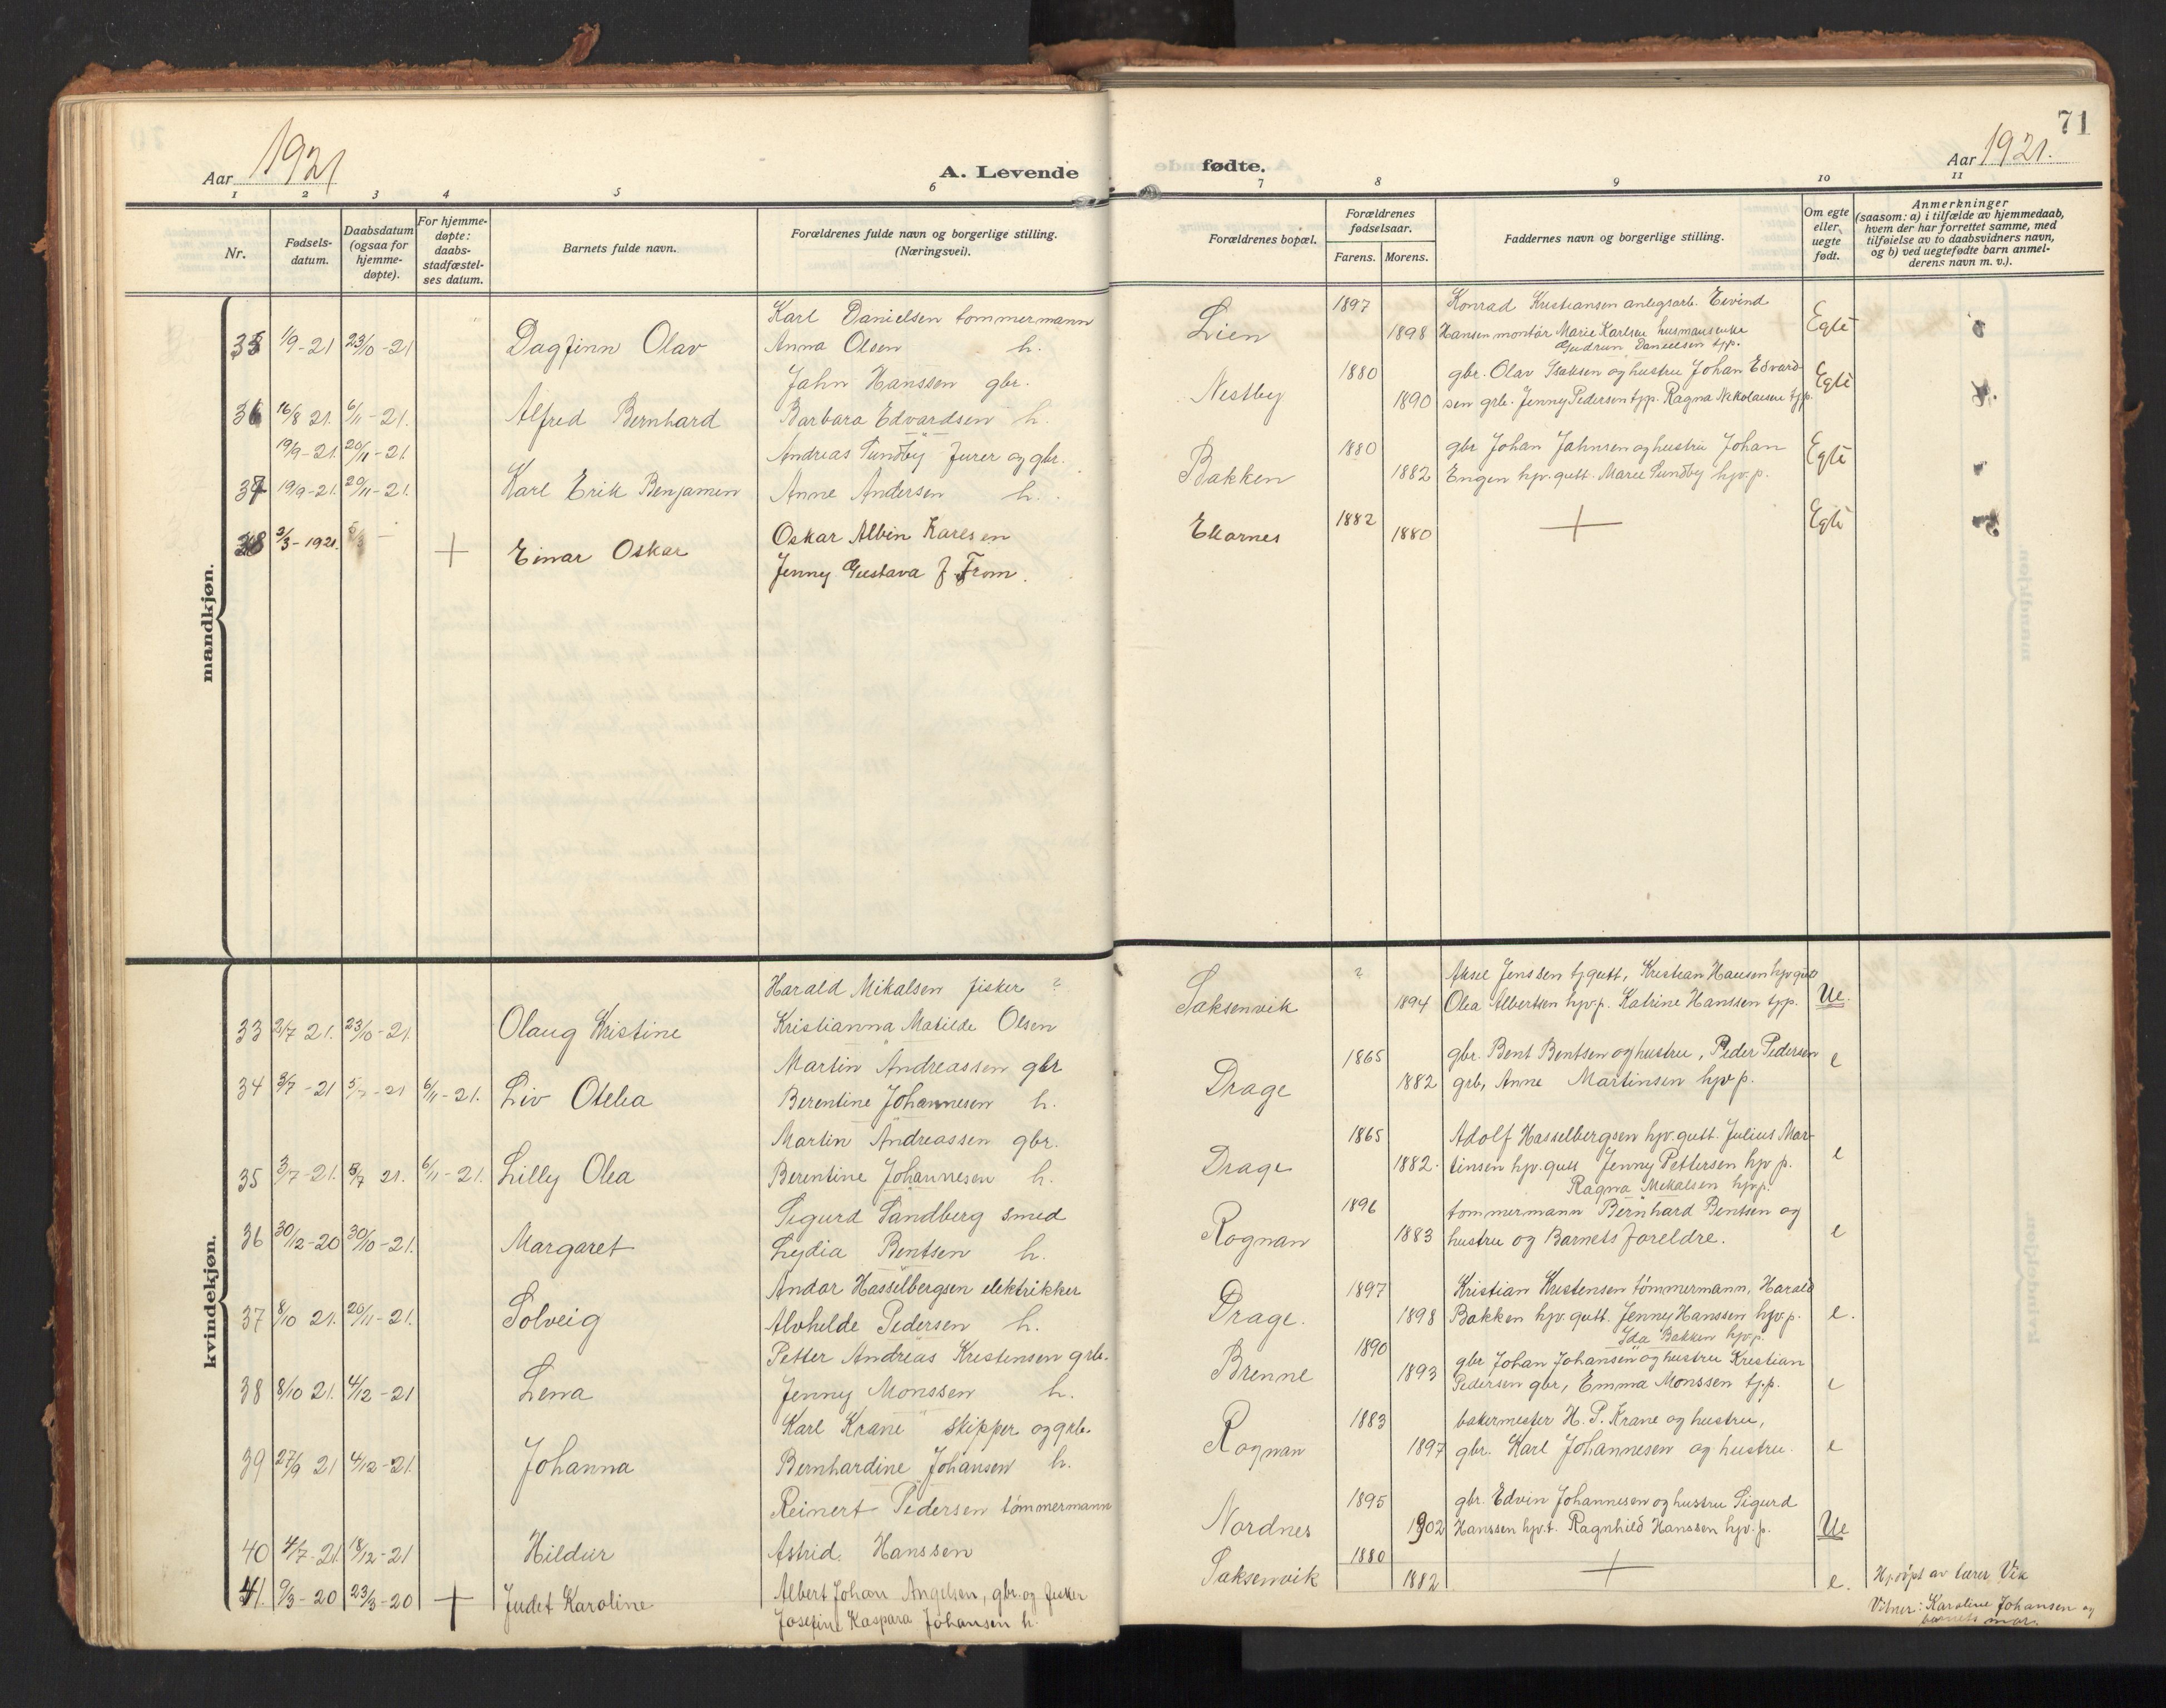 71
Aar 1921
A. Levende
fødte.
Aar 1921.
1 2 3 4 5 6 7 8 9 10 11
Nr.
Fødsels-
datum.
Daabsdatum
(ogsaa for
hjemme-
døpte).
For hjemme-
døpte:
daabs-
stadfæstel-
ses datum.
Barnets fulde navn.
Forældrenes fulde navn og borgerlige stilling.
(Næringsvei).
Forældrenes bopæl.
Forældrenes
fødselsaar.
Farens. Morens.
Faddernes navn og borgerlige stilling.
Om egte
eller
uegte
født.
Anmerkninger
(saasom: a) i tilfælde av hjemmedaab,
hvem der har forrettet samme, med
tilføielse av to daabsvidners navn,
og b) ved uegtefødte barn anmel-
derens navn m. v.).
mandkjøn.
Karl Danielsen tommermann 1897 Konrad Kristiansen anlegsarb. Eivind
35 1/9-21 23/10-21 Dagfinn Olav Anna Olsen h. Lien 1898 Hansen montør Marie Karlsen husmansenke Egte
Gudrun Danielsen tjp.
Jahn Hanssen gbr. 1880 gbr. Olav Isaksen og hustru Johan Edvard-
36 16/8 21. 6/11-21. Alfred Bernhard Barbara Edvardsen h. Nestby 1890 sen grb. Jenny Pedersen tjp. Ragna Nikolaisen tjp. Egte
19/9-21. 20/11-21. Andreas Sundby furer og gbr. 1880 gbr Johan Jahnsen og hustru Johan
37 19/9-21. 20/11-21. Karl Erik Benjamen Anne Andersen h. Bakken 1882 Engen hjv. gutt. Marie Sundby hjv.p. Egte
38 3/3-1921. + Einar Oskar Oskar Albin Karlsen 1882 1880 + Egte
Jenny Gustava f From.
kvindekjøn.
Harald Mikalsen fisker ? ? Aksel Jenssen tjgutt, Kristian Hansen hjv gutt
33 2/7 21. 23/10-21. Olaug Kristine Kristianna Matilde Olsen Saksenvik 1894 Olea Albertsen hjv.p. Katrine Hanssen tjp. Ue.
Martin Andreassen gbr 1865 gbr. Bent Bentsen og hustru, Peder Pedersen
34 3/7-21 5/7-21 6/11-21. Liv Otelia Berentine Johannesen h. Drage 1882 grb, Anne Martinsen hjv p. e
Martin Andreassen gbr. 1865 Adolf Hasselbergsen hjv. gutt. Julius Mar-
35 3/7-21. 5/7 21. 6/11-21. Lilly Olea Berentine Johannesen h. Drage 1882. tinsen hjv. gutt Jenny Pettersen hjv p. e
Ragna Mikalsen hjvp.
Sigurd Sandberg smed 1896 tommermann Bernhard Bentsen og
36 30/12-20 30/10-21. Margaret Lydia Bentsen h. Rognan 1883 hustru og Barnets foreldre. e
Andor Hasselbergsen elektrikker 1897 Kristian Kristensen tømmermann, Harald
37 8/10 21. 20/11-21. Solveig Alvhilde Pedersen h. Drage. 1898 Bakken hjv. gutt. Jenny Hanssen hjv p. e.
Ida Bakken hjv p.
Petter Andreas Kristensen grb. 1890 gbr Johan Johansen og hustru Kristian
38 8/10 21. 4/12-21 Lena Jenny Monssen h. Brenne 1893 Pedersen gbr, Emma Monssen tj.p. e
Karl Krane skipper og grb. 1883 bakermester H. P. Krane og hustru,
39 27/9 21 4/12-21. Johanna Bernhardine Johansen h. Rognan 1897 gbr. Karl Johannesen og hustru. e
Reinert Pedersen tømmermann 1895 gbr. Edvin Johannesen og hustru Sigurd
40 4/7-21. 18/12-21 Hildur Astrid. Hanssen Nordnes 1902 Hanssen hjv.t. Ragnhild Hanssen hjv. p. Ue
41. 9/3-20 23/3-20 + Judet Karoline Albert Johan Angelsen, gbr. og fisker Saksenvik 1880 1882 + e. Hj.døpt av lærer Vik
Josefine Kaspara Johansen h. Vitner: Karoline Johansen og
barnets mor.